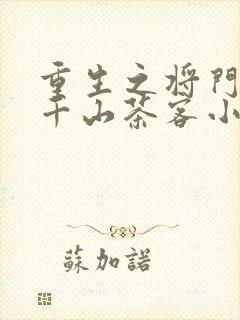 重生之将门
千山茶客小
蘇加諾